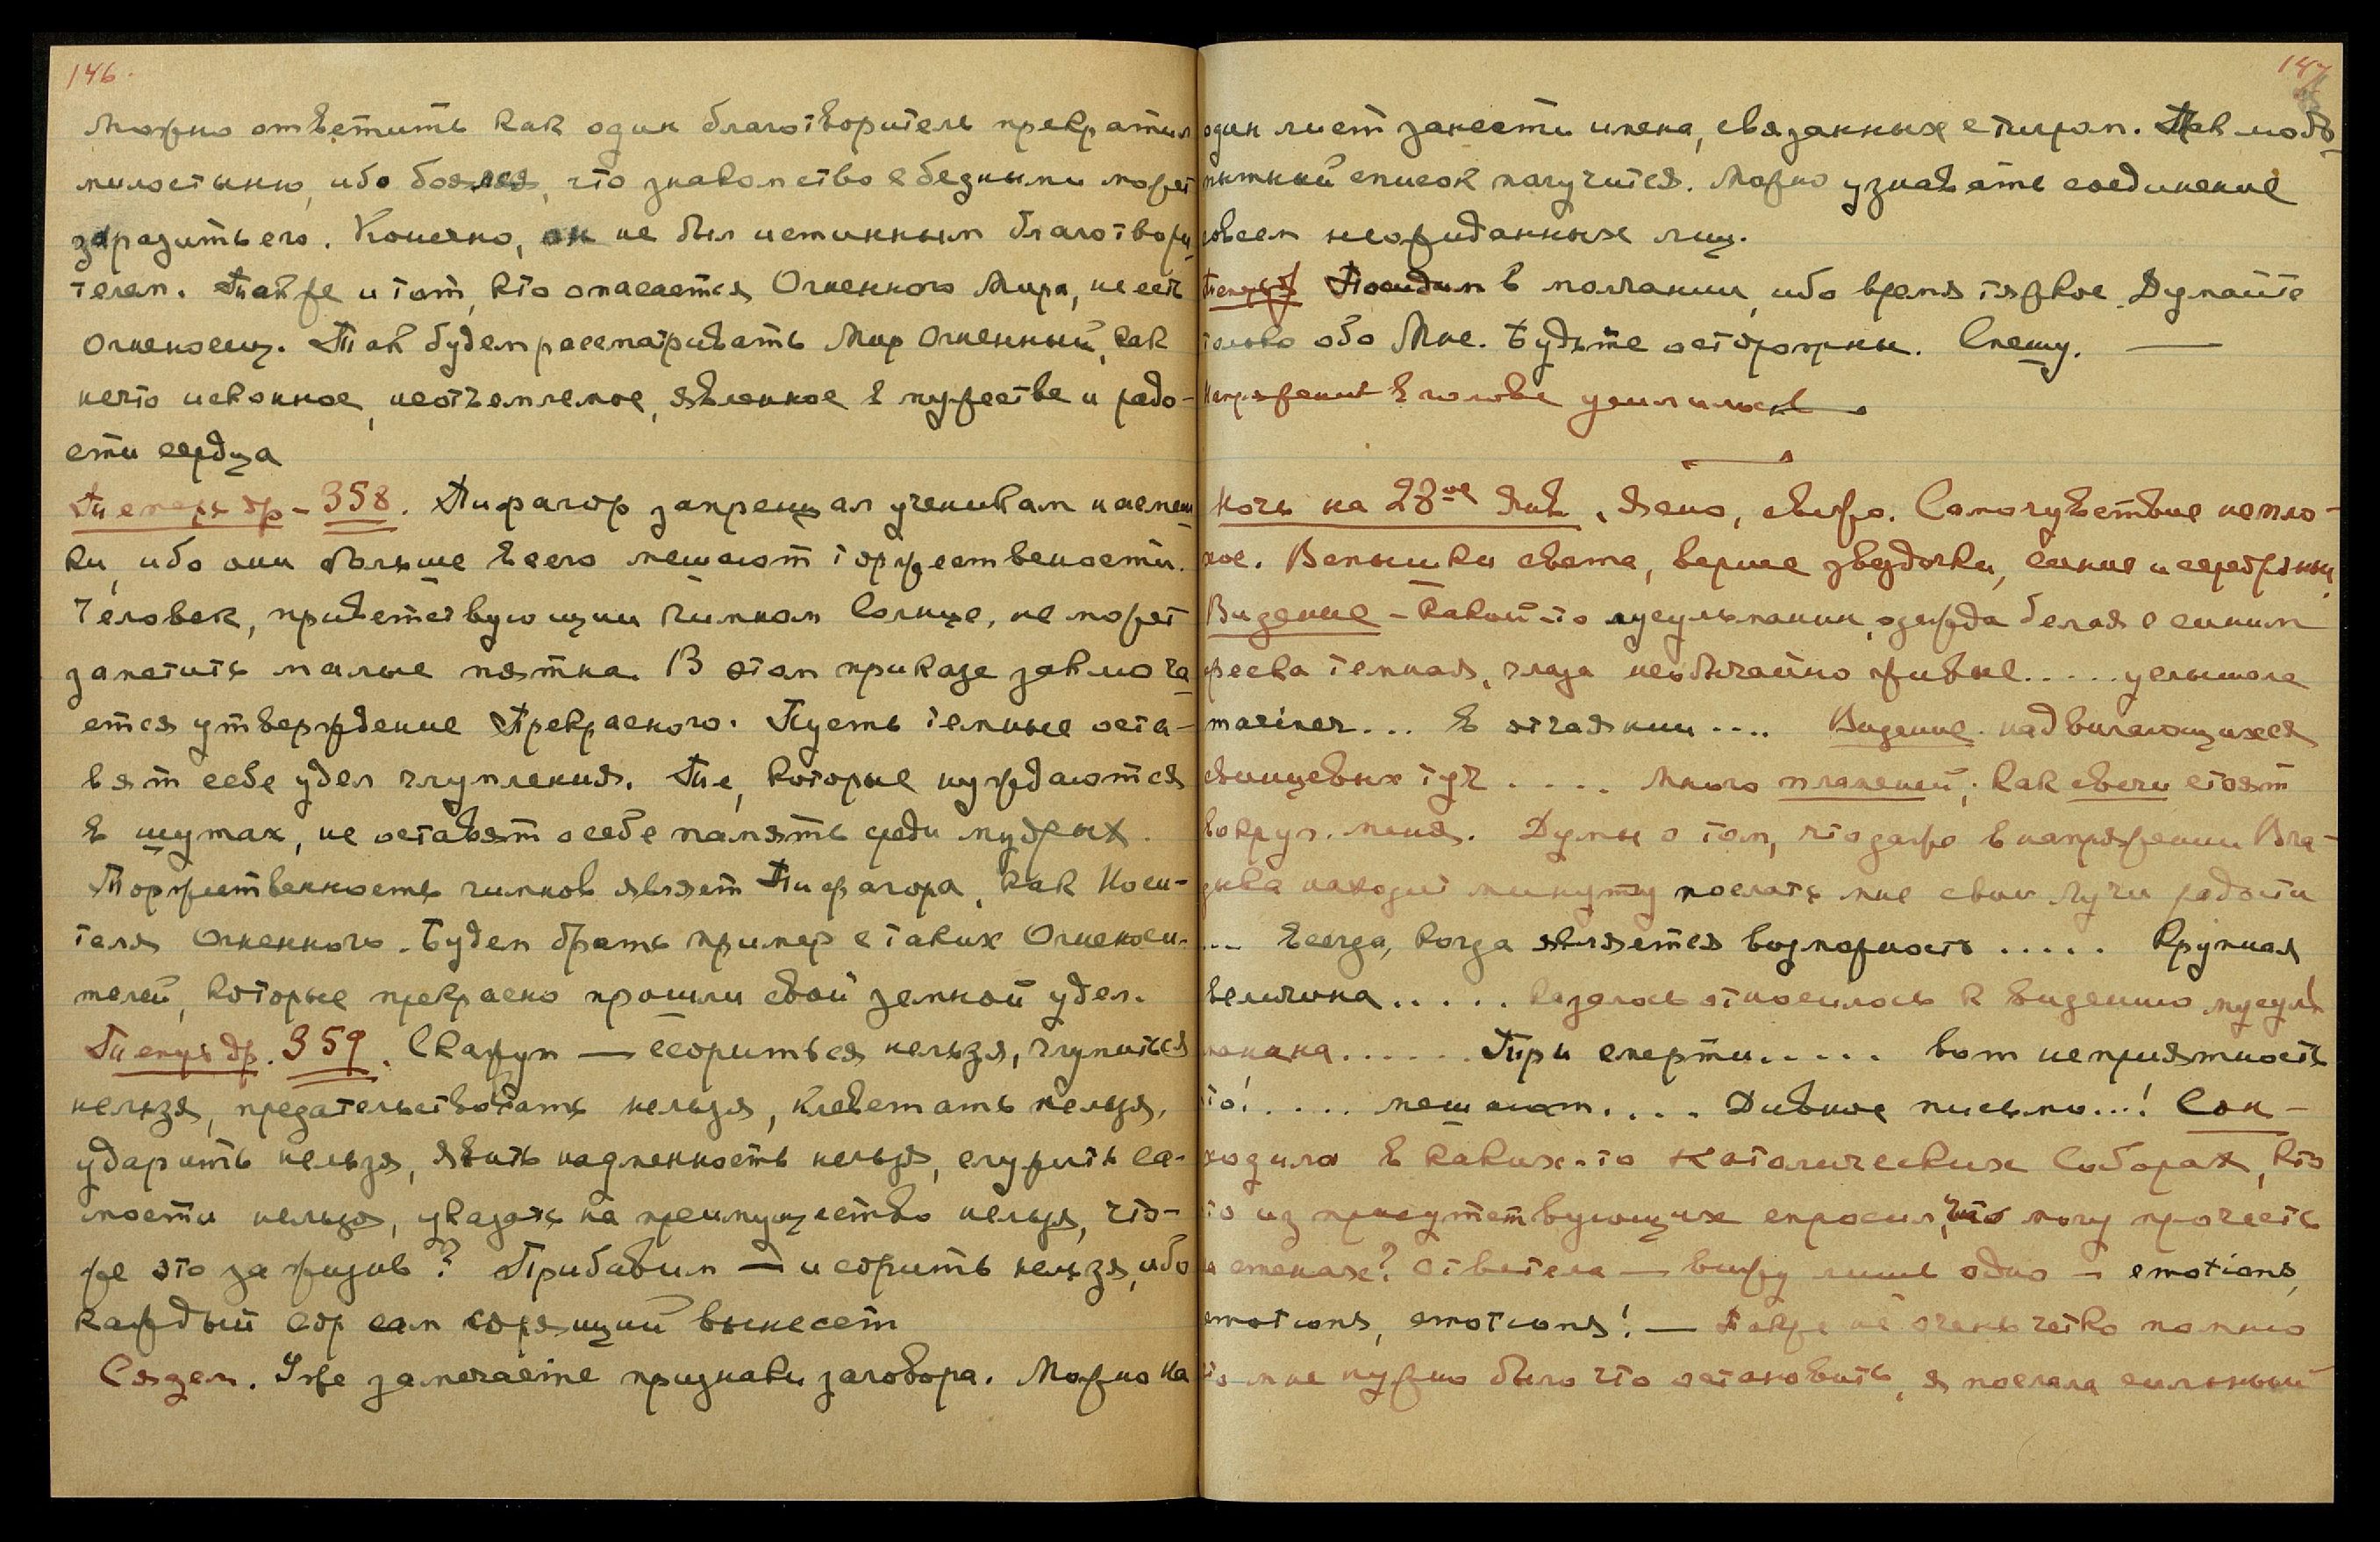 146.
можно ответить как один благотворитель прекратил
милостыню, ибо боялся, что знакомство с бедными может
заразить его. Конечно, он не был истинным благотвори-
телем. Также и тот, кто опасается Огненного Мира, не есть
Огненосец. Так будем рассматривать Мир Огненный, как
нечто исконное, неотъемлемое, явленное в мужестве и радо-
сти сердца
Теперь др - 358. Пифагор запрещал ученикам насмеш-
ки, ибо они больше всего мешают торжественности.
Человек, приветствующий гимном Солнце, не может
заметить малые пятна. В этом приказе заключа-
ется утверждение Прекрасного. Пусть темные оста-
вят себе удел глумления. Те, которые нуждаются
в шутах, не оставят о себе память среди мудрых.
Торжественность гимнов являет Пифагора, как Носи-
теля Огненного. Будем брать пример с таких Огненоси-
телей, которые прекрасно прошли свой земной удел.
Теперь др. 359. Скажут — ссориться нельзя, глумиться
нельзя, предательствовать нельзя, клеветать нельзя,
ударить нельзя, явить надменность нельзя, служить са-
мости нельзя, указать на преимущество нельзя, что-
же это за жизнь? Прибавим — и сорить нельзя, ибо
каждый сор сам сорящий вынесет
Сядем. Уже замечаете признаки заговора. Можно на
147
один лист занести имена, связанных с тиром. Так любо-
пытный список получится. Можно узнавать соединение
совсем неожиданных лиц.
Посидим в молчании, ибо время тяжкое. Думайте
только обо Мне. Будьте осторожны. Спешу. —
Напряжение в голове усилилось.
Ночь на 28ое Янв. Ясно, свежо. Самочувствие непло-
хое. Вспышки света, вернее звездочки, синие и серебряны,
Видение - какой-то мусульманин, одежда белая с синим
феска темная, глаза необычайно живые..... услышала
mariner... в отчаянии.... Видение надвигающихся
свинцевых туч .... Много пламеней; как свечи стоят
вокруг меня. Думы о том, что даже в напряжении Вла-
дыка находит минуту послать мне свои лучи радости
... всегда, когда является возможность ..... Крупная
величина..... казалось относилось к видению мусуль-
манина...... При смерти..... вот неприятность
то!..... мешают.... Дивное письмо...! Сон -
ходила в каких-то Католических Соборах, кто
то из присутствующих спросил, что могу прочесть
на стенах? Ответила — вижу лишь одно - emotions,
emotions, emotions! — Также не очень четко помню
что мне нужно было что остановить, я послала сильный